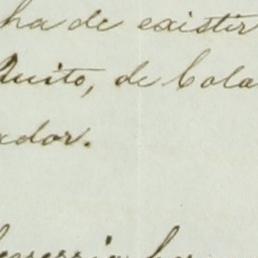 ha de existir
Quito, de Cola
ador.